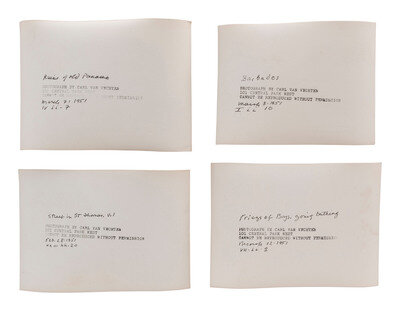 Ruins of Old Panama
PHOTOGRAPH BY CARL VAN VECHTEN
101 CENTRAL PARK WEST
CANNOT BE REPRODUCED WITHOUT PERMISSION
March 21 1951
Barbados
PHOTOGRAPH BY CARL VAN VECHTEN
101 CENTRAL PARK WEST
CANNOT BE REPRODUCED WITHOUT PERMISSION
March 8 1951
Street in St Thomas, V.I
PHOTOGRAPH BY CARL VAN VECHTEN
101 CENTRAL PARK WEST
CANNOT BE REPRODUCED WITHOUT PERMISSION
Feb 28 1951
of Boys going bathing
PHOTOGRAPH BY CARL VAN VECHTEN
101 CENTRAL PARK WEST
CANNOT BE REPRODUCED WITHOUT PERMISSION
March 12 1951